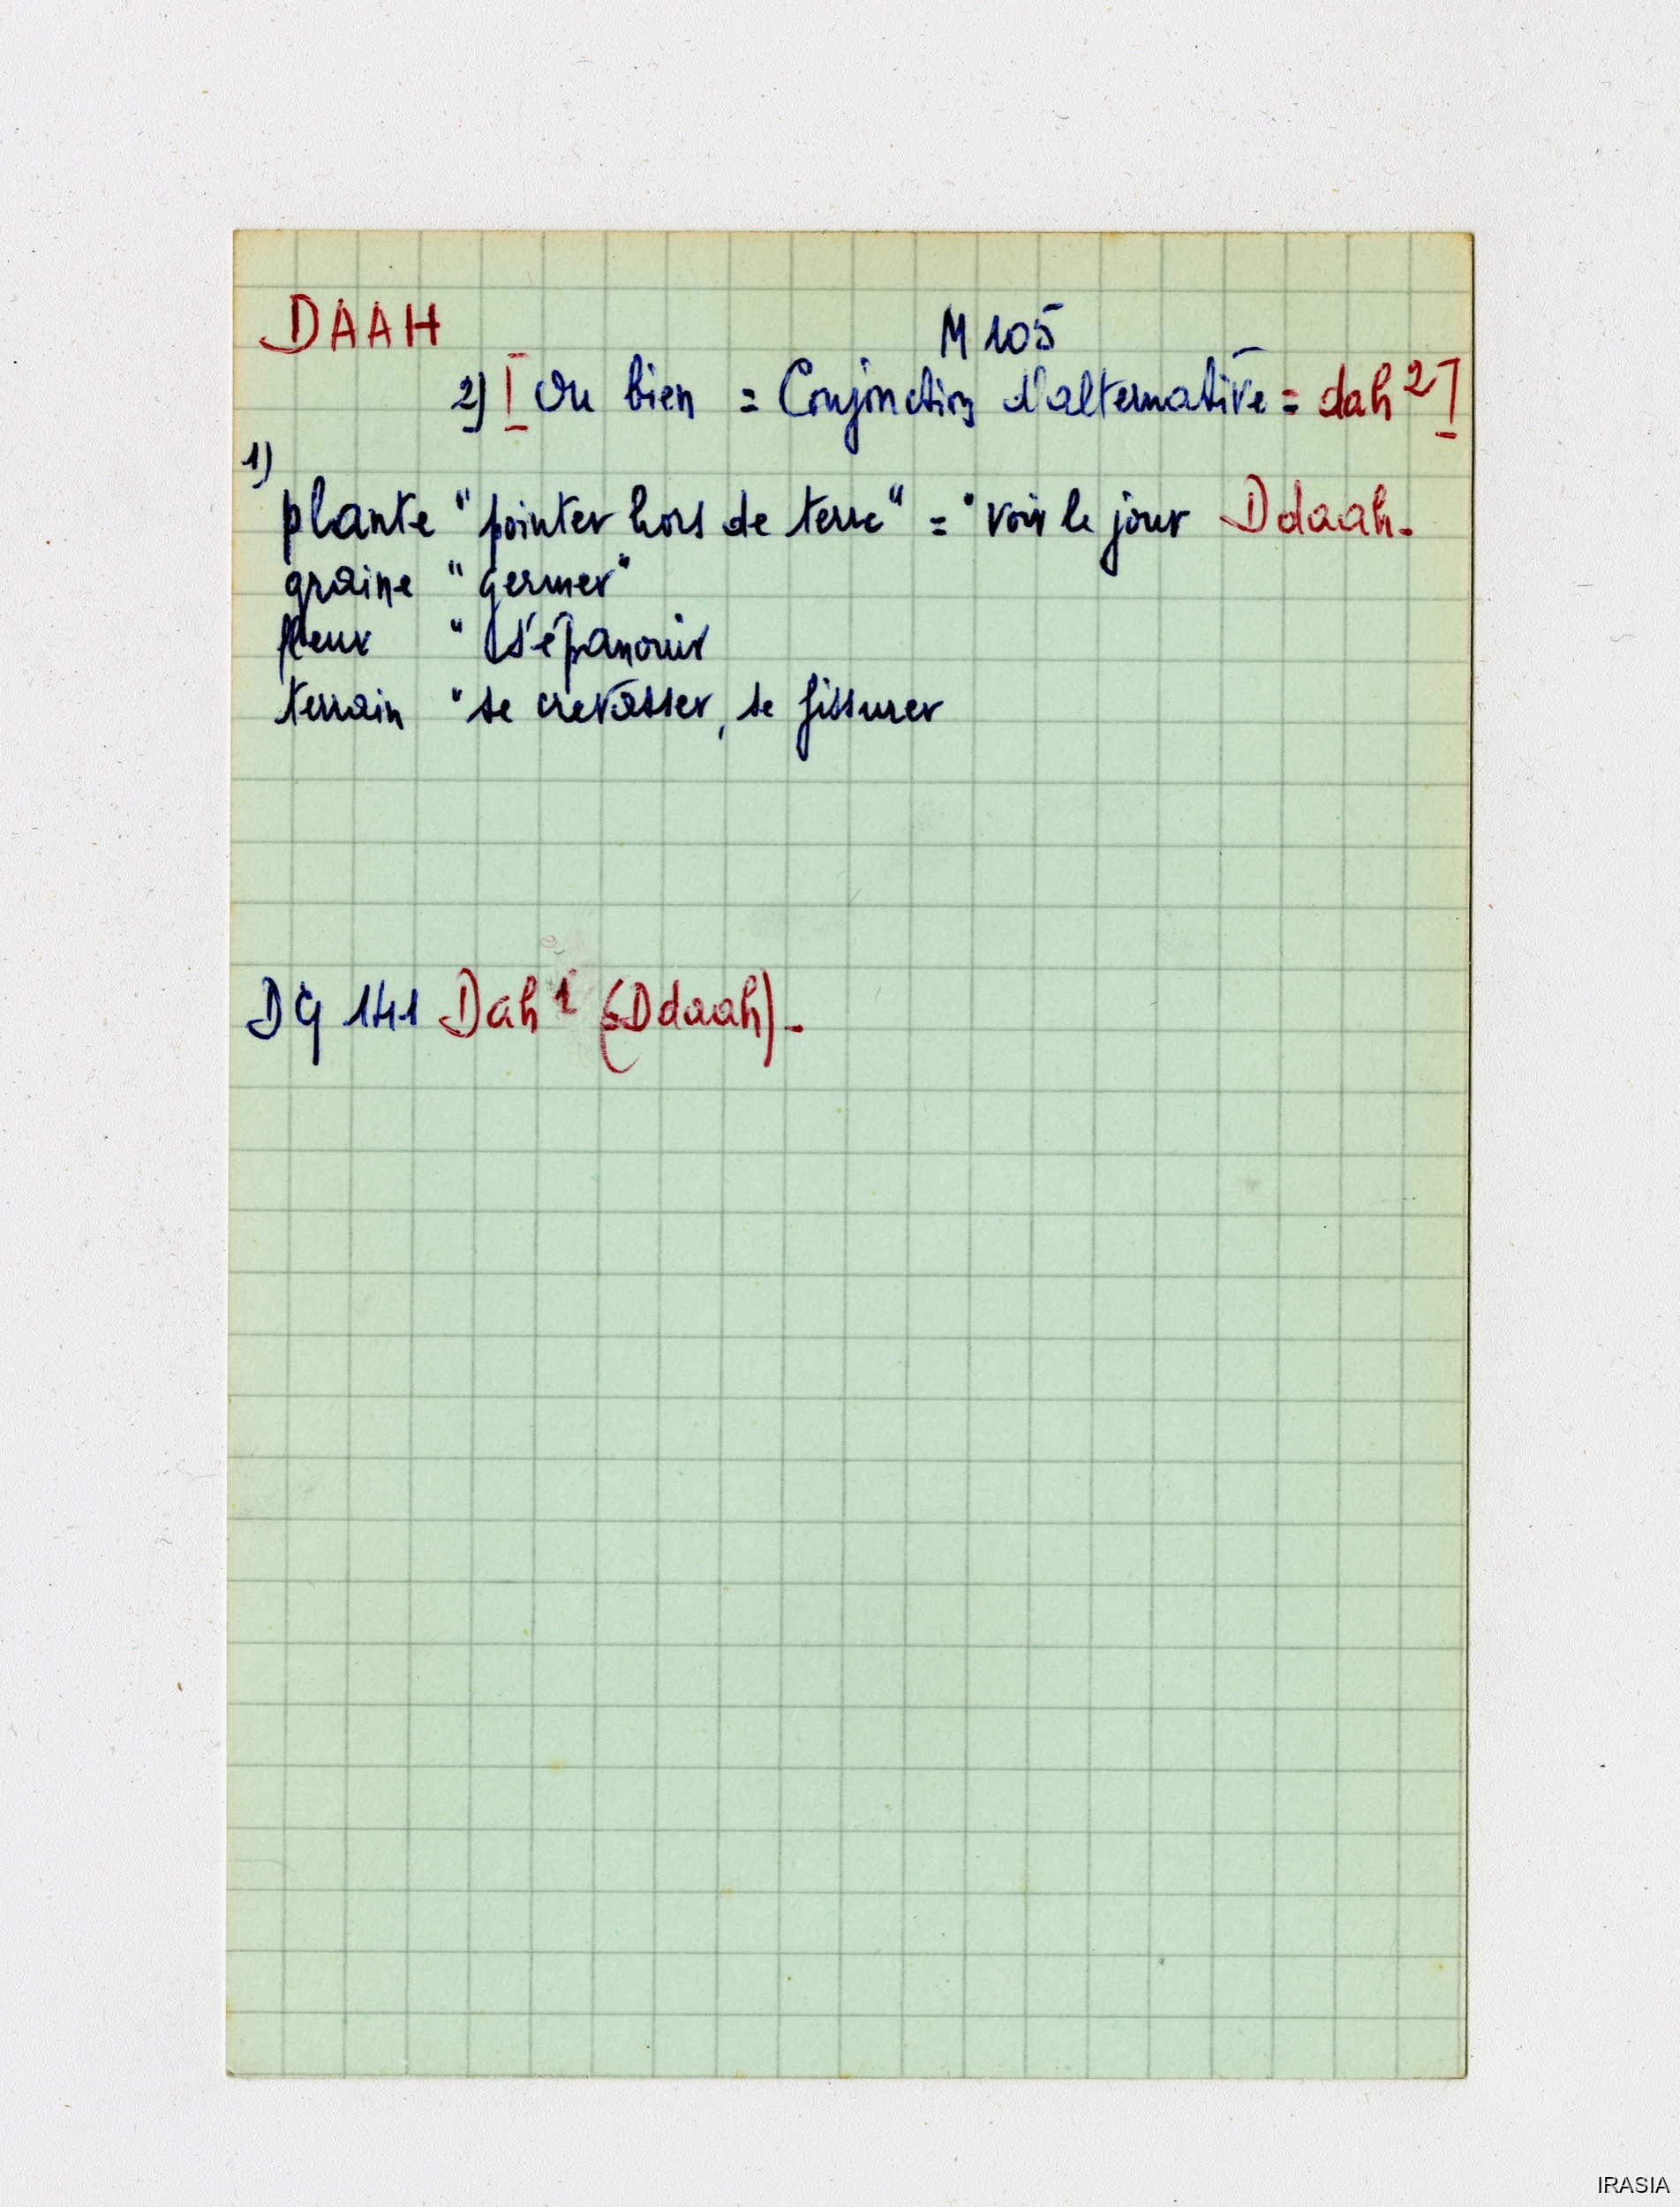 DAAH
M 105
2) [ Ou bien = Conjonction d'alternative = dah 2 ]
1)
plante " pointer hors de terre " = " voir le jour Ddaah.
graine " germer "
fleur " s'épanouir
terrain " se crevasser, se fissurer
DG 141 Dah 1 (Ddaah).
IRASIA